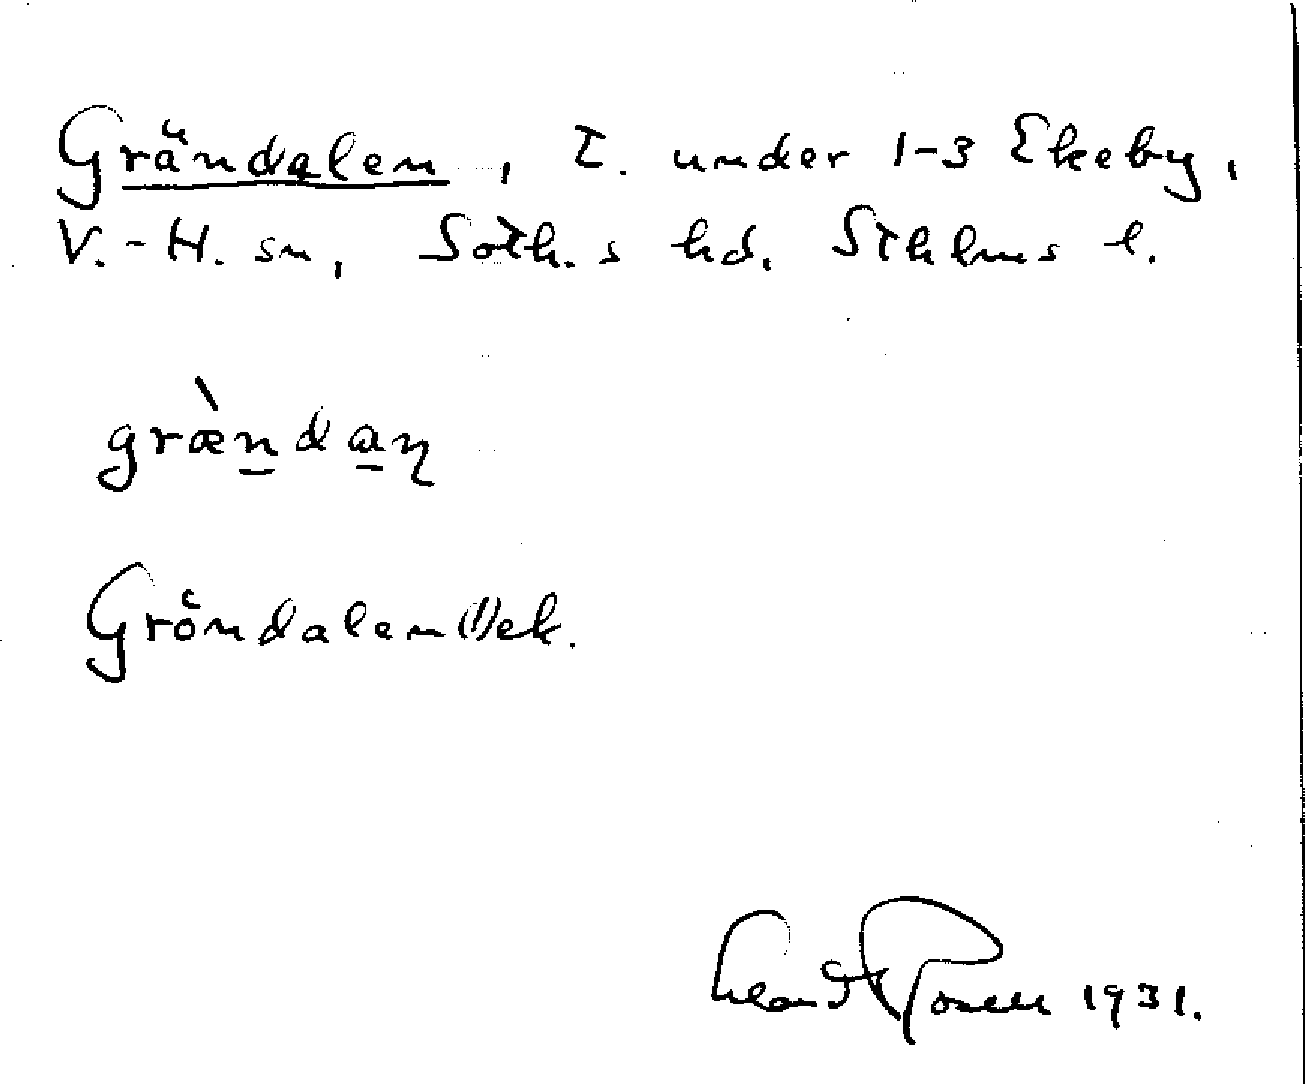 Grändalen, T. under 1-3 Ekeby,
V.-H. sn, Soth.s hd. Sthlms l.
græ̀n̲da̲ŋ
Gröndalen ek.
1931.